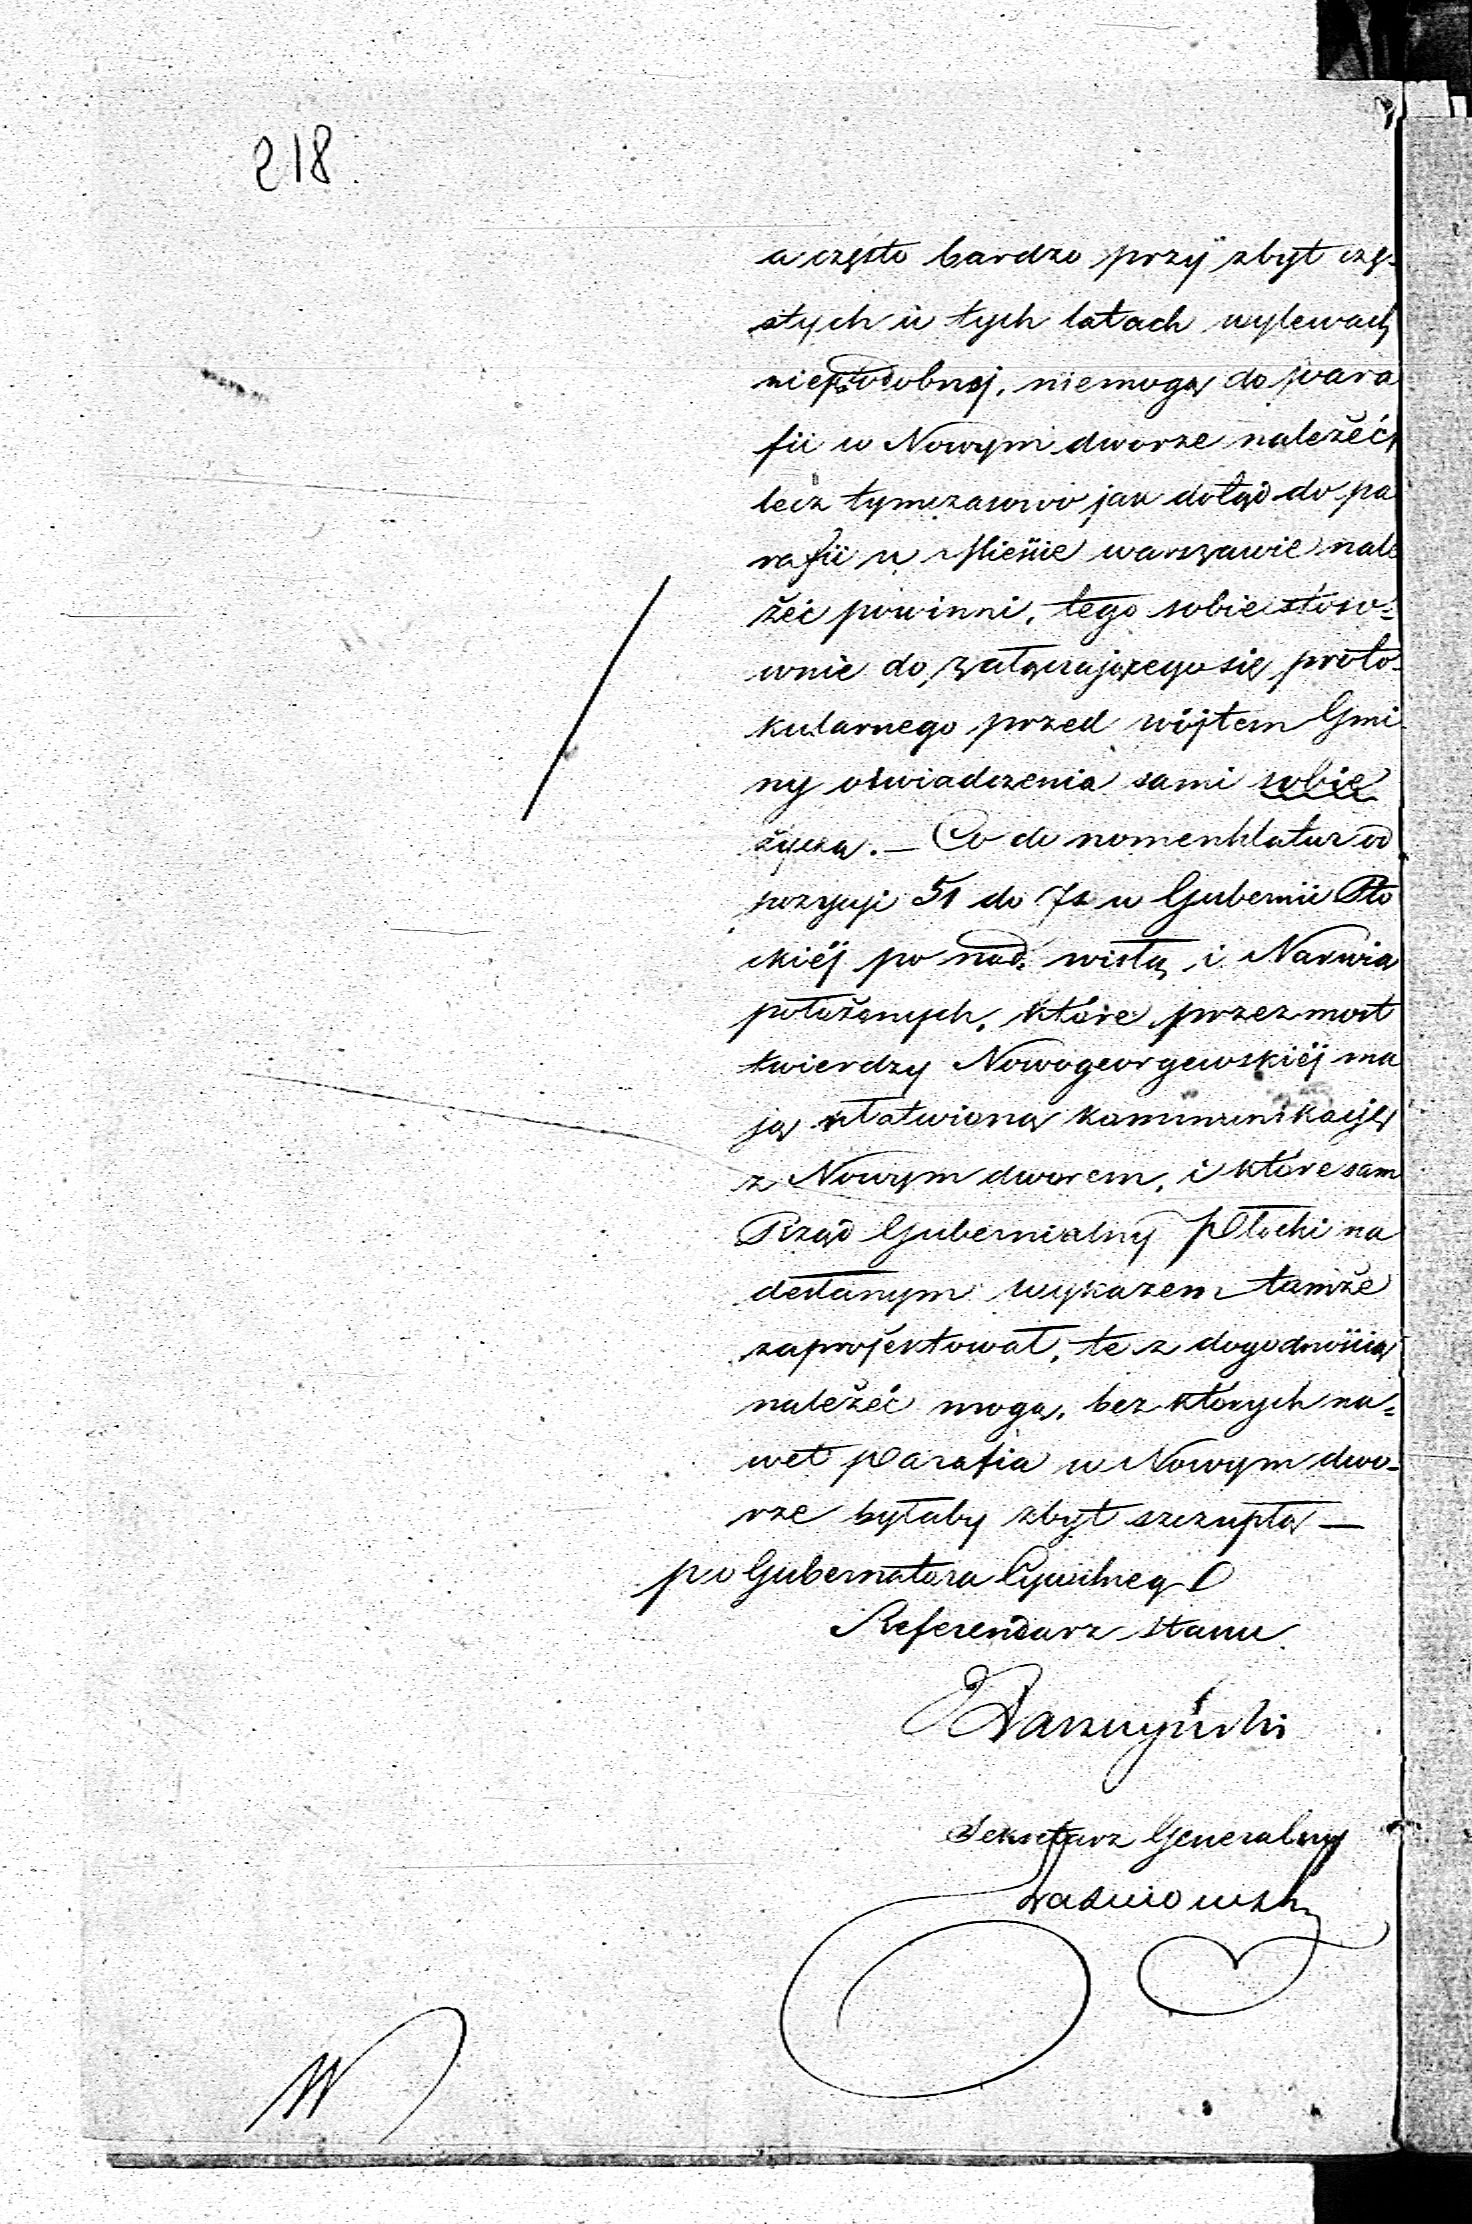 218
a często bardzo przy zbyt czę-
stych w tych latach wylewach
niepodobnej, niemogą do para
fii w Nowym dworze należeć,
lecz tymczasowo jak dotąd do pa
rafii w Mieście warszawie nale
żeć powinni, tego sobie stoso-
wnie do załączającego się proto-
kularnego przed wójtem Gmi
ny oświadczenia sami sobie
życzą. — Co do nomenklatur od
pozycyi 51 do 72 w Gubernii Pło
ckiéj po nad wisłą i Narwią
położonych, które przez most
twierdzy Nowogeorgewskiéj ma
ją ułatwioną kommunikacyę
z Nowym dworem, i które sam
Rząd Gubernialny Płocki na
desłanym wykazem tamże
zaprojektował, te z dogodnością
należéć mogą, bez których na-
wet parafia w Nowym dwo-
rze byłaby zbyt szczupłą —
po Gubernatora Cywilnego
Referendarz Stanu
Sekretarz Generalny